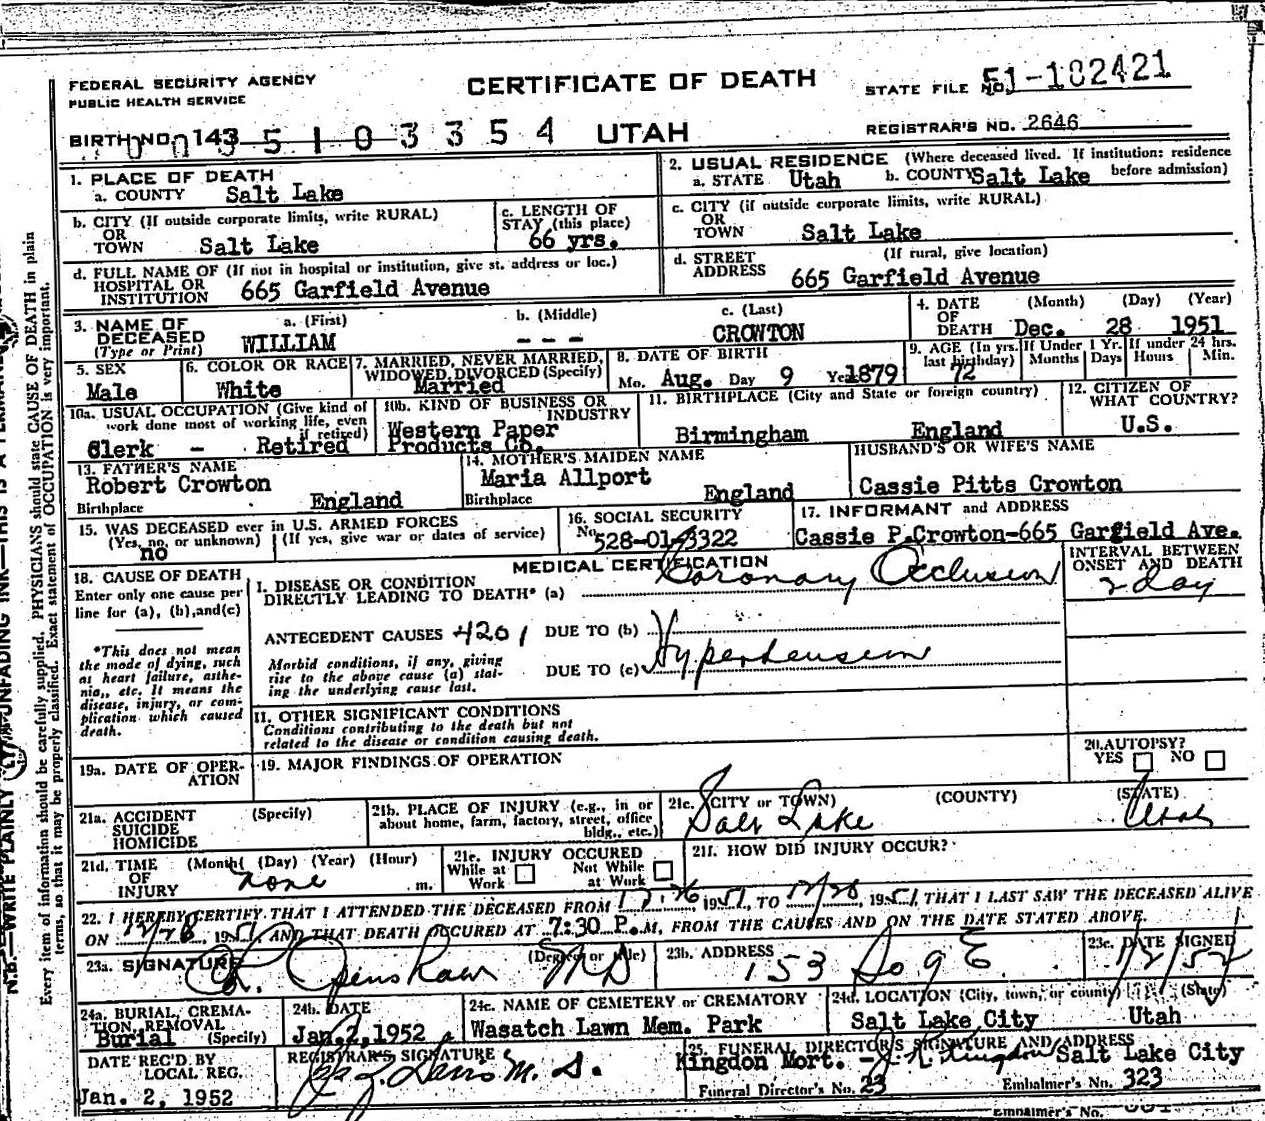 FEDERAL SECURITY AGENCY
PUBLIC HEALTH SERVICE
CERTIFICATE OF DEATH
STATE FILE NO. 51-182421
BIRTH NO. 143
0035103354
UTAH
REGISTRAR'S NO. 2646
1. PLACE OF DEATH
a. COUNTY Salt Lake
2. USUAL RESIDENCE (Where deceased lived. If institution: residence before admission)
a. STATE Utah b. COUNTY Salt Lake
b. CITY (If outside corporate limits, write RURAL)
OR
TOWN Salt Lake
c. LENGTH OF
STAY (this place)
66 yrs.
c. CITY (if outside corporate limits, write RURAL)
OR
TOWN Salt Lake
d. FULL NAME OF (If not in hospital or institution, give st. address or loc.)
HOSPITAL OR
INSTITUTION 665 Garfield Avenue
d. STREET (If rural, give location)
ADDRESS 665 Garfield Avenue
3. NAME OF
DECEASED
(Type or Print)
a. (First) b. (Middle) c. (Last)
WILLIAM - - - CROWTON
4. DATE (Month) (Day) (Year)
OF
DEATH Dec. 28 1951
5. SEX
Male
6. COLOR OR RACE
White
7. MARRIED, NEVER MARRIED,
WIDOWED, DIVORCED (Specify)
Married
8. DATE OF BIRTH
Mo. Aug. Day 9 Year 1879
9. AGE (In yrs. last birthday)
72
If Under 1 Yr. If under 24 hrs.
Months Days Hours Min.
10a. USUAL OCCUPATION (Give kind of
work done most of working life, even
if retired)
Clerk - Retired
10b. KIND OF BUSINESS OR
INDUSTRY
Western Paper
Products Co.
11. BIRTHPLACE (City and State or foreign country)
Birmingham England
12. CITIZEN OF
WHAT COUNTRY?
U.S.
13. FATHER'S NAME
Robert Crowton
Birthplace England
14. MOTHER'S MAIDEN NAME
Maria Allport
Birthplace England
HUSBAND'S OR WIFE'S NAME
Cassie Pitts Crowton
15. WAS DECEASED ever in U.S. ARMED FORCES
(Yes, no, or unknown) (If yes, give war or dates of service)
no
16. SOCIAL SECURITY
No. 528-01-3322
17. INFORMANT and ADDRESS
Cassie P.Crowton-665 Garfield Ave.
MEDICAL CERTIFICATION
INTERVAL BETWEEN
ONSET AND DEATH
18. CAUSE OF DEATH
Enter only one cause per
line for (a), (b),and(c)
*This does not mean
the mode of dying, such
as heart failure, asthe-
nia,, etc. It means the
disease, injury, or com-
plication which caused
death.
I. DISEASE OR CONDITION
DIRECTLY LEADING TO DEATH* (a) Coronary Occlusion
2 day
ANTECEDENT CAUSES 4201 DUE TO (b)
Morbid conditions, if any, giving
rise to the above cause (a) stat-
ing the underlying cause last.
DUE TO (c) Hypertension
II. OTHER SIGNIFICANT CONDITIONS
Conditions contributing to the death but not
related to the disease or condition causing death.
19a. DATE OF OPER-
ATION
19. MAJOR FINDINGS OF OPERATION
20. AUTOPSY?
YES NO
21a. ACCIDENT (Specify)
SUICIDE
HOMICIDE
21b. PLACE OF INJURY (e.g., in or
about home, farm, factory, street, office
bldg., etc.)
21c. (CITY or TOWN) (COUNTY) (STATE)
Salt Lake Utah
21d. TIME (Month) (Day) (Year) (Hour)
OF
INJURY none m.
21e. INJURY OCCURED
While at Work Not While at Work
21f. HOW DID INJURY OCCUR?
22. I HEREBY CERTIFY THAT I ATTENDED THE DECEASED FROM 12/26, 1951, TO 12/28, 1951, THAT I LAST SAW THE DECEASED ALIVE
ON 12/28, 1951 AND THAT DEATH OCCURED AT 7:30 P.M, FROM THE CAUSES AND ON THE DATE STATED ABOVE.
23a. SIGNATURE (Degree or title) MD
Openshaw
23b. ADDRESS
153 So 9 E
23c. DATE SIGNED
1/2/52
24a. BURIAL, CREMA-
TION, REMOVAL
Burial (Specify)
24b. DATE
Jan. 2, 1952
24c. NAME OF CEMETERY or CREMATORY
Wasatch Lawn Mem. Park
24d. LOCATION (City, town, or county) (State)
Salt Lake City Utah
DATE REC'D BY
LOCAL REG.
Jan. 2, 1952
REGISTRAR'S SIGNATURE
M. D.
25. FUNERAL DIRECTOR'S SIGNATURE AND ADDRESS
Kingdon Mort. - Kingdon Salt Lake City
Funeral Director's No. 23 Embalmer's No. 323
Embalmer's No.
N.B.—WRITE PLAINLY
UNFADING INK—THIS IS A PERMAN
Every item of information should be carefully supplied. PHYSICIANS should state CAUSE OF DEATH in plain
terms, so that it may be properly classified. Exact statement of OCCUPATION is very important.